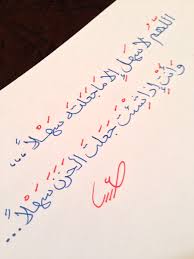 اللَّهُمَّ لَا سَهْلَ إِلَّا مَا جَعَلْتَهُ سَهْلًا ...
وَأَنْتَ إِذَا شِئْتَ جَعَلْتَ الْحَزَنَ سَهْلًا ...